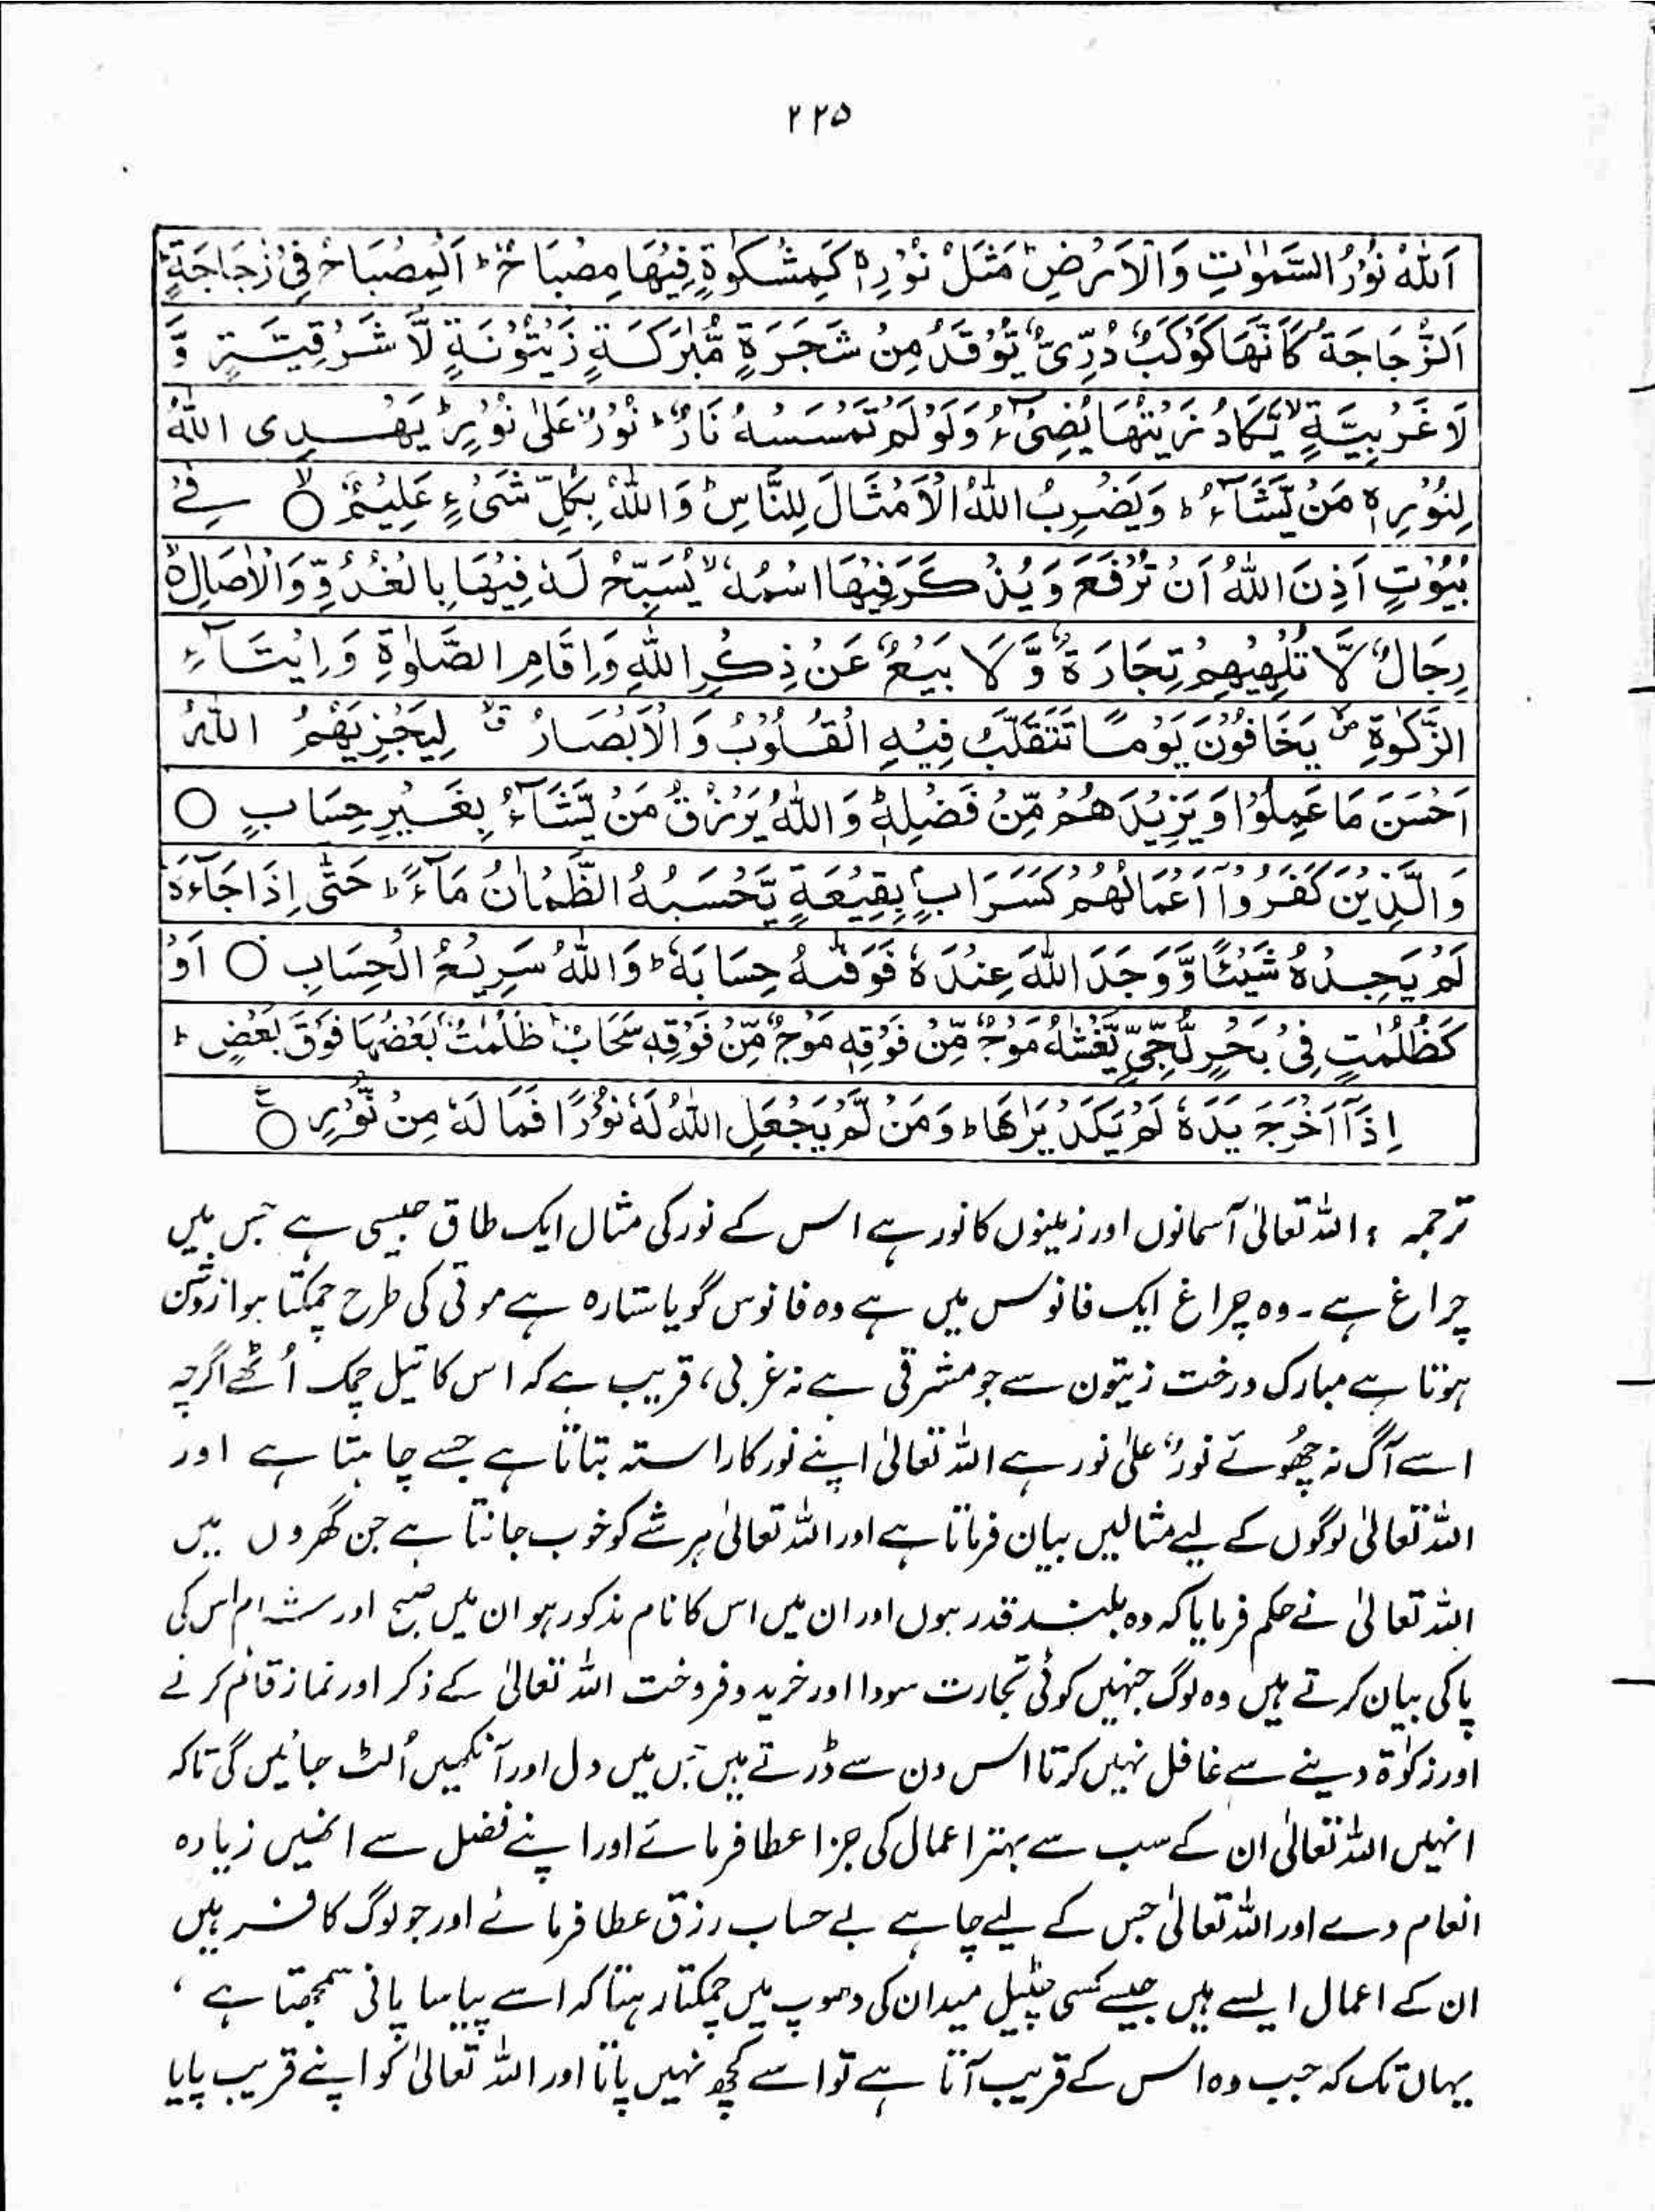 ۲۲۵
اَللّٰهُ نُوْرُ السَّمٰوٰتِ وَالْاَرْضِ ؕ مَثَلُ نُوْرِهٖ كَمِشْكٰوةٍ فِيْهَا مِصْبَاحٌ ؕ اَلْمِصْبَاحُ فِيْ زُجَاجَةٍ ؕ
اَلزُّجَاجَةُ كَاَنَّهَا كَوْكَبٌ دُرِّيٌّ يُّوْقَدُ مِنْ شَجَرَةٍ مُّبٰرَكَةٍ زَيْتُوْنَةٍ لَّا شَرْقِيَّةٍ وَّ
لَا غَرْبِيَّةٍ ۙ يَّكَادُ زَيْتُهَا يُضِيْٓءُ وَلَوْ لَمْ تَمْسَسْهُ نَارٌ ؕ نُوْرٌ عَلٰى نُوْرٍ ؕ يَهْدِى اللّٰهُ
لِنُوْرِهٖ مَنْ يَّشَآءُ ؕ وَيَضْرِبُ اللّٰهُ الْاَمْثَالَ لِلنَّاسِ ؕ وَاللّٰهُ بِكُلِّ شَىْءٍ عَلِيْمٌ ۙ ○ فِيْ
بُيُوْتٍ اَذِنَ اللّٰهُ اَنْ تُرْفَعَ وَيُذْكَرَ فِيْهَا اسْمُهٗ ۙ يُسَبِّحُ لَهٗ فِيْهَا بِالْغُدُوِّ وَالْاٰصَالِ ۙ
رِجَالٌ ۙ لَّا تُلْهِيْهِمْ تِجَارَةٌ وَّ لَا بَيْعٌ عَنْ ذِكْرِ اللّٰهِ وَاِقَامِ الصَّلٰوةِ وَاِيْتَآءِ
الزَّكٰوةِ ۙ يَخَافُوْنَ يَوْمًا تَتَقَلَّبُ فِيْهِ الْقُلُوْبُ وَالْاَبْصَارُ ۙ لِيَجْزِيَهُمُ اللّٰهُ
اَحْسَنَ مَا عَمِلُوْا وَيَزِيْدَهُمْ مِّنْ فَضْلِهٖ ؕ وَاللّٰهُ يَرْزُقُ مَنْ يَّشَآءُ بِغَيْرِ حِسَابٍ ○
وَالَّذِيْنَ كَفَرُوْٓا اَعْمَالُهُمْ كَسَرَابٍۭ بِقِيْعَةٍ يَّحْسَبُهُ الظَّمْاٰنُ مَآءً ؕ حَتّٰى اِذَا جَآءَهٗ
لَمْ يَجِدْهُ شَيْئًا وَّوَجَدَ اللّٰهَ عِنْدَهٗ فَوَفّٰىهُ حِسَابَهٗ ؕ وَاللّٰهُ سَرِيْعُ الْحِسَابِ ○ اَوْ
كَظُلُمٰتٍ فِيْ بَحْرٍ لُّجِّيٍّ يَّغْشٰىهُ مَوْجٌ مِّنْ فَوْقِهٖ مَوْجٌ مِّنْ فَوْقِهٖ سَحَابٌ ؕ ظُلُمٰتٌۢ بَعْضُهَا فَوْقَ بَعْضٍ ؕ
اِذَآ اَخْرَجَ يَدَهٗ لَمْ يَكَدْ يَرٰىهَا ؕ وَمَنْ لَّمْ يَجْعَلِ اللّٰهُ لَهٗ نُوْرًا فَمَا لَهٗ مِنْ نُّوْرٍ ○ ع
ترجمہ : اللہ تعالیٰ آسمانوں اور زمینوں کا نور ہے اس کے نور کی مثال ایک طاق جیسی ہے جس میں
چراغ ہے۔ وہ چراغ ایک فانوس میں ہے وہ فانوس گویا ستارہ ہے موتی کی طرح چمکتا ہوا روشن
ہوتا ہے مبارک درخت زیتون سے جو مشرقی ہے نہ غربی، قریب ہے کہ اس کا تیل چمک اُٹھے اگرچہ
اسے آگ نہ چھُوئے نورٌ علیٰ نور ہے اللہ تعالیٰ اپنے نور کا راستہ بتاتا ہے جسے چاہتا ہے اور
اللہ تعالیٰ لوگوں کے لیے مثالیں بیان فرماتا ہے اور اللہ تعالیٰ ہر شے کو خوب جانتا ہے جن گھروں میں
اللہ تعالیٰ نے حکم فرمایا کہ وہ بلند قدر ہوں اور ان میں اس کا نام مذکور ہو ان میں صبح اور شام اس کی
پاکی بیان کرتے ہیں وہ لوگ جنہیں کوئی تجارت سودا اور خرید و فروخت اللہ تعالیٰ کے ذکر اور نماز قائم کرنے
اور زکوٰۃ دینے سے غافل نہیں کرتا اس دن سے ڈرتے ہیں جس میں دل اور آنکھیں اُلٹ جائیں گی تاکہ
انہیں اللہ تعالیٰ ان کے سب سے بہتر اعمال کی جزا عطا فرمائے اور اپنے فضل سے انھیں زیادہ
انعام دے اور اللہ تعالیٰ جس کے لیے چاہے بے حساب رزق عطا فرمائے اور جو لوگ کافر ہیں
ان کے اعمال ایسے ہیں جیسے کسی چٹیل میدان کی دھوپ میں چمکتا رہتا کہ اسے پیاسا پانی سمجھتا ہے ،
یہاں تک کہ جب وہ اس کے قریب آتا ہے تو اسے کچھ نہیں پاتا اور اللہ تعالیٰ کو اپنے قریب پایا